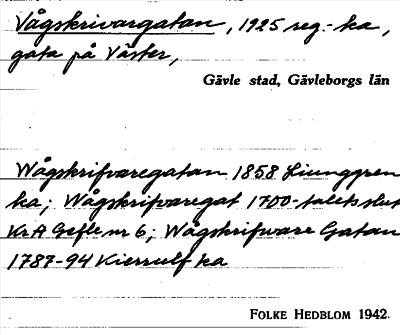 Vågskrivargatan, 1925 reg.-ka,
gata på Väster,
Gävle stad, Gävleborgs län
Wågskrifvaregatan 1858 Ljunggren
ka; Wågskrifvaregat 1700-talets slut
KrA Gefle nr 6; Wågskrifware Gatan
1787-94 Kierrulf ka
FOLKE HEDBLOM 1942.